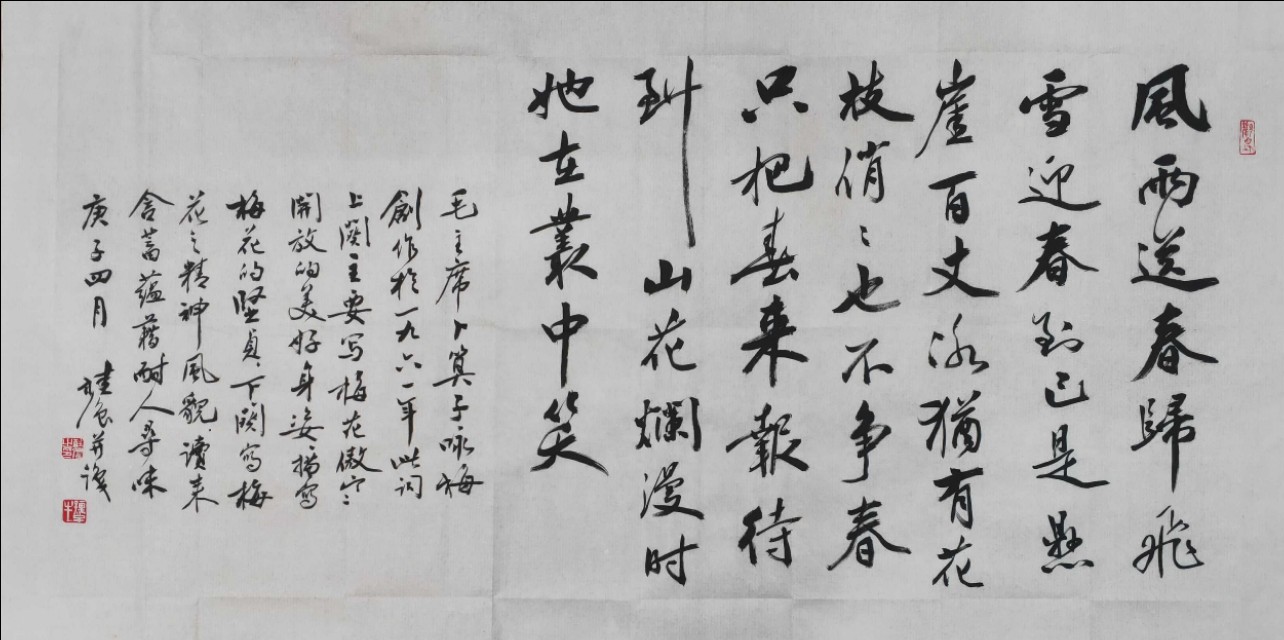 風雨送春歸飛
雪迎春到已是懸
崖百丈冰猶有花
枝俏俏也不争春
只把春来報待
到山花爛漫时
她在叢中笑
毛主席卜算子咏梅
創作於一九六一年此词
上阕主要写梅花傲寒
開放的美好身姿描寫
梅花的堅貞下阕寫梅
花之精神風貌讀来
含蓄蕴藉耐人尋味
庚子四月
并識